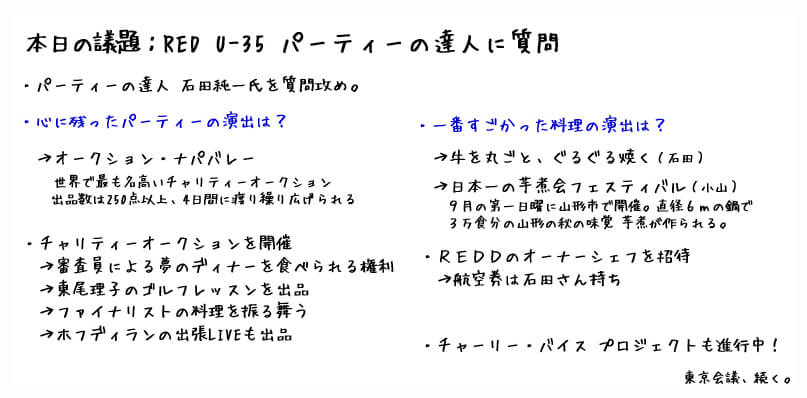 本日の議題；RED U-35 パーティーの達人に質問
・パーティーの達人 石田純一氏を質問攻め。
・心に残ったパーティーの演出は？
→オークション・ナパバレー
世界で最も名高いチャリティーオークション
出品数は250点以上、4日間に渡り繰り広げられる
・チャリティーオークションを開催
→審査員による夢のディナーを食べられる権利
→東尾理子のゴルフレッスンを出品
→ファイナリストの料理を振る舞う
→ホフディランの出張LIVEも出品
・一番すごかった料理の演出は？
→牛を丸ごと、ぐるぐる焼く（石田）
→日本一の芋煮会フェスティバル（小山）
９月の第一日曜に山形市で開催。直径６ｍの鍋で
３万食分の山形の秋の味覚 芋煮が作られる。
・ＲＥＤＤのオーナーシェフを招待
→航空券は石田さん持ち
・チャーリー・バイス プロジェクトも進行中！
東京会議、続く。